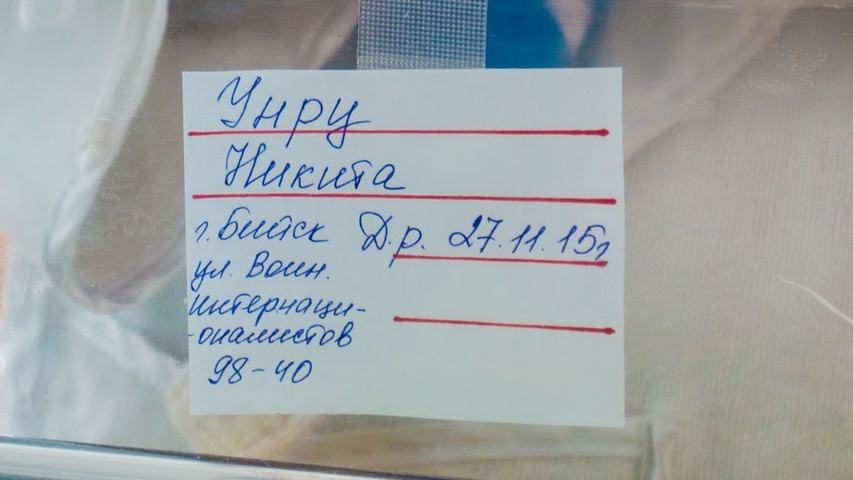 Унру
Никита
г. Бийск Д.р. 27.11.15г
ул. Воин.
Интернаци-
-оналистов
98-40